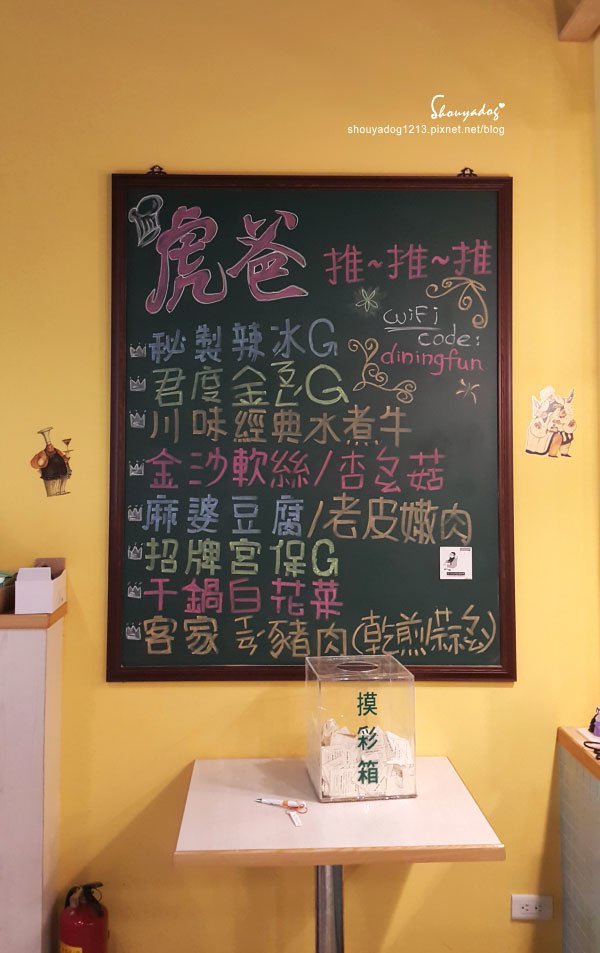 Shouyadog
shouyadog1213.pixnet.net/blog
虎爸 推~推~推
WiFi
code:
diningfun
秘製辣冰G
君度金瓜G
川味經典水煮牛
金沙軟絲/杏幺菇
麻婆豆腐/老皮嫩肉
招牌宮保G
干鍋白花菜
客家豬肉(乾煎蒜幺)
摸彩箱